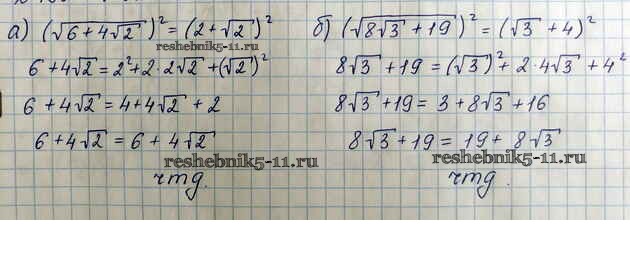 а) (√(6+4√2))² = (2+√2)²
6+4√2 = 2²+2·2√2+(√2)²
6+4√2 = 4+4√2+2
6+4√2 = 6+4√2
чтд.
б) (√(8√3+19))² = (√3+4)²
8√3+19 = (√3)²+2·4√3+4²
8√3+19 = 3+8√3+16
8√3+19 = 19+8√3
чтд.
reshebnik5-11.ru
reshebnik5-11.ru
reshebnik5-11.ru